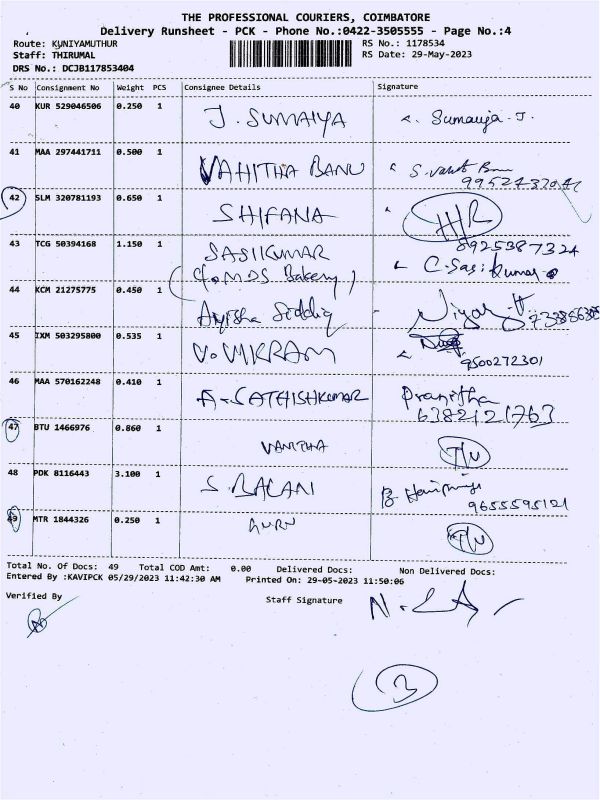 THE PROFESSIONAL COURIERS, COIMBATORE
Delivery Runsheet - PCK - Phone No.:0422-3505555 - Page No.:4
Route: KUNIYAMUTHUR RS No.: 1178534
Staff: THIRUMAL RS Date: 29-May-2023
DRS No.: DCJB117853404
S No Consignment No Weight PCS Consignee Details Signature
40 KUR 529046506 0.250 1 J. SUMAIYA Sumaiya. J.
41 MAA 297441711 0.500 1 VAHITHA BANU
42 SLM 320781193 0.650 1 SHIFANA H/R
43 TCG 50394168 1.150 1 SASIKUMAR 8925387324
(C/o MDS Bakery) C. Sasi kumar
44 KCM 21275775 0.450 1 Ayisha Siddiq
45 IXM 503295800 0.535 1 V. VIKRAM 9500272301
46 MAA 570162248 0.410 1 A. SATHISHKUMAR Pranitha
6382121763
47 BTU 1466976 0.860 1 VANITHA
48 PDK 8116443 3.100 1 S. BALANI
9655595121
49 MTR 1844326 0.250 1 GURU
Total No. Of Docs: 49 Total COD Amt: 0.00 Delivered Docs: Non Delivered Docs:
Entered By :KAVIPCK 05/29/2023 11:42:30 AM Printed On: 29-05-2023 11:50:06
Verified By Staff Signature
3